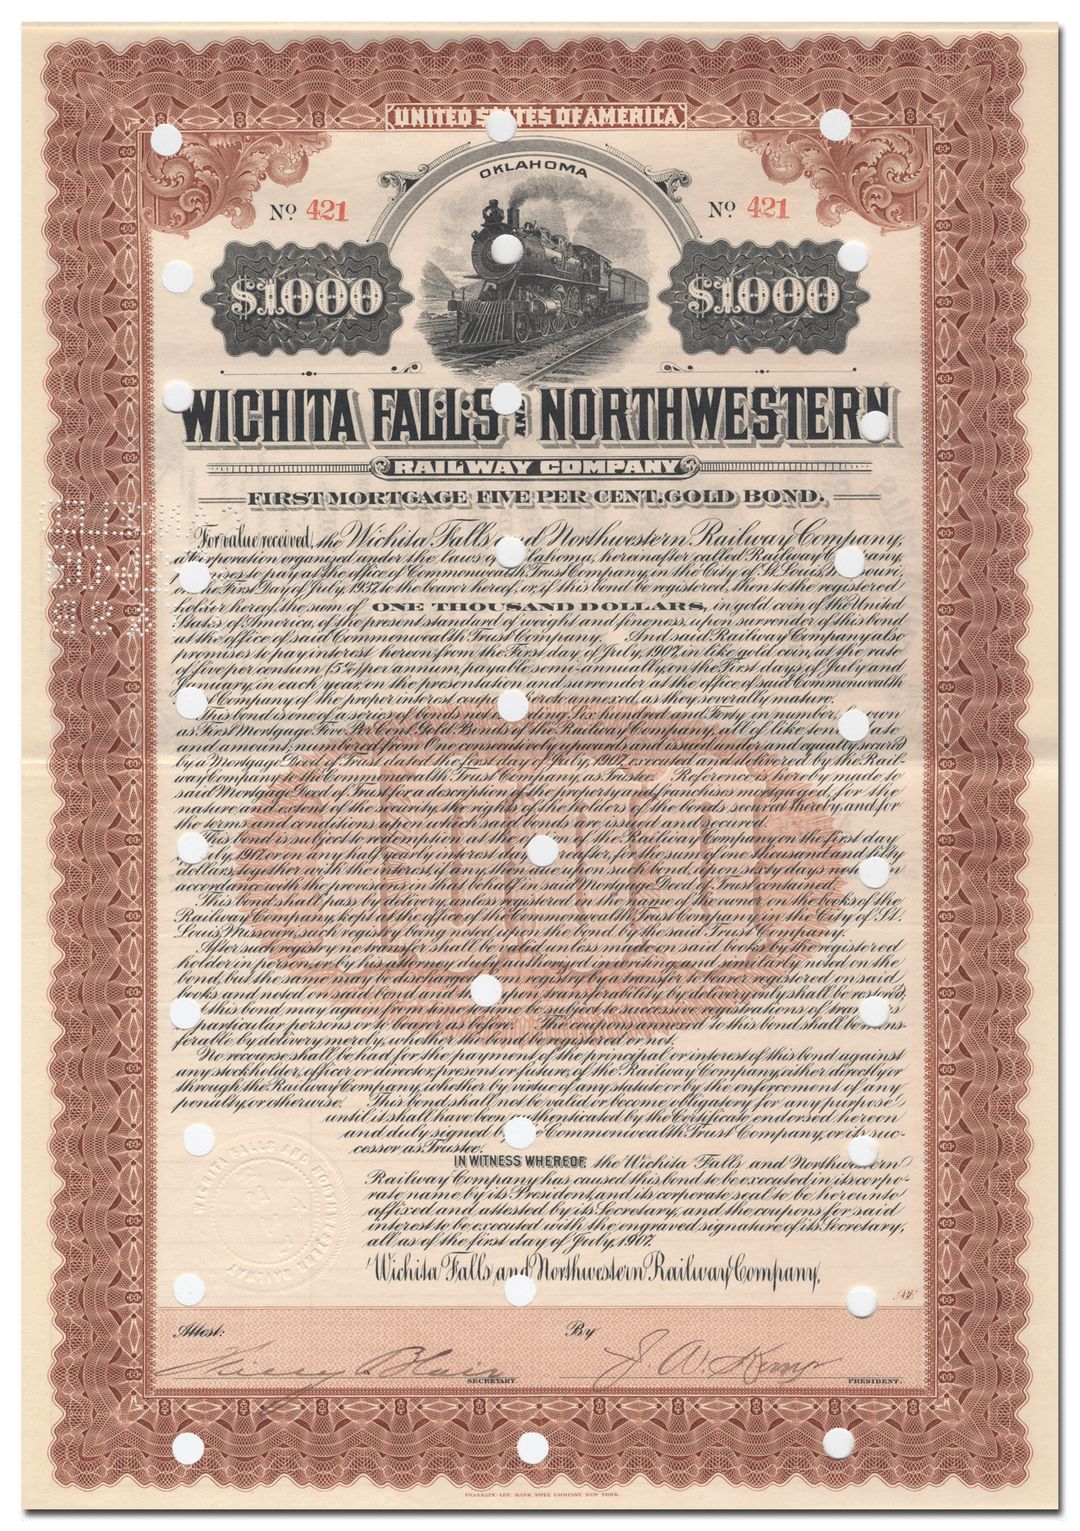 UNITED STATES OF AMERICA
OKLAHOMA
No 421
No 421
$1000
$1000
WICHITA FALLS AND NORTHWESTERN
RAILWAY COMPANY
FIRST MORTGAGE FIVE PER CENT. GOLD BOND.
For value received, the Wichita Falls and Northwestern Railway Company,
a corporation organized under the laws of Oklahoma, hereinafter called Railway Company,
promises to pay at the office of Commonwealth Trust Company, in the City of St. Louis, Missouri,
on the First Day of July, 1937, to the bearer hereof, or, if this bond be registered, then to the registered
holder hereof, the sum of ONE THOUSAND DOLLARS, in gold coin of the United
States of America, of the present standard of weight and fineness, upon surrender of this bond
at the office of said Commonwealth Trust Company. And said Railway Company also
promises to pay interest hereon from the First day of July, 1907, in like gold coin, at the rate
of five per centum (5%) per annum, payable semi-annually, on the First days of July and
January, in each year, on the presentation and surrender at the office of said Commonwealth
Company of the proper interest coupons hereto annexed, as they severally mature.
This bond is one of a series of bonds not exceeding Six hundred and Forty in number, known
as First Mortgage Five Per Cent. Gold Bonds of the Railway Company, all of like tenor, date
and amount, numbered from One consecutively upwards and issued under and equally secured
by a Mortgage Deed of Trust dated the first day of July, 1907, executed and delivered by the Rail-
way Company to the Commonwealth Trust Company, as Trustee. Reference is hereby made to
said Mortgage Deed of Trust for a description of the property and franchises mortgaged, for the
nature and extent of the security, the rights of the holders of the bonds secured thereby, and for
the terms and conditions upon which said bonds are issued and secured.
This bond is subject to redemption at the option of the Railway Company on the first day
July, 1912, or on any half yearly interest day thereafter, for the sum of one thousand and fifty
dollars, together with the interest, if any, then due upon such bond, upon sixty days notice in
accordance with the provisions in that behalf in said Mortgage Deed of Trust contained.
This bond shall pass by delivery, unless registered in the name of the owner on the books of the
Railway Company, kept at the office of the Commonwealth Trust Company in the City of St.
Louis, Missouri, such registry being noted upon the bond by the said Trust Company.
After such registry no transfer shall be valid unless made on said books by the registered
holder in person, or by his attorney duly authorized in writing, and similarly noted on the
bond, but the same may be discharged from registry by a transfer to bearer registered on said
books and noted on said bond and thereupon transferability by delivery only shall be restored,
this bond may again from time to time be subject to successive registrations of transfers
particular persons or to bearer as before. The coupons annexed to this bond shall be trans-
ferable by delivery merely, whether the bond be registered or not.
No recourse shall be had for the payment of the principal or interest of this bond against
any stockholder, officer or director, present or future, of the Railway Company, either directly or
through the Railway Company, whether by virtue of any statute or by the enforcement of any
penalty, or otherwise. This bond shall not be valid or become obligatory for any purpose
until it shall have been authenticated by the Certificate endorsed hereon
and duly signed by the Commonwealth Trust Company, or its suc-
cessor as Trustee.
IN WITNESS WHEREOF, the Wichita Falls and Northwestern
Railway Company has caused this bond to be executed in its corpo-
rate name by its President, and its corporate seal to be hereunto
affixed and attested by its Secretary, and the coupons for said
interest to be executed with the engraved signature of its Secretary,
all as of the first day of July, 1907.
Wichita Falls and Northwestern Railway Company,
Attest:
By J. A. Kemp
SECRETARY.
PRESIDENT.
FRANKLIN-LEE BANK NOTE COMPANY, NEW YORK.